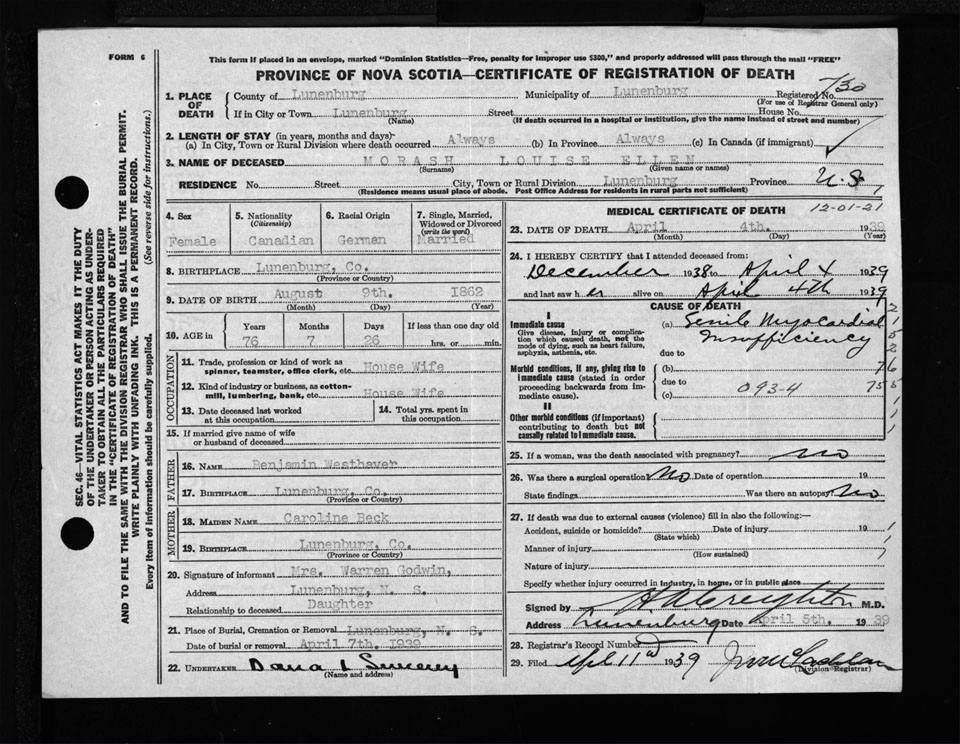 FORM 6
This form if placed in an envelope, marked "Dominion Statistics—Free, penalty for improper use $300," and properly addressed will pass through the mail "FREE"
PROVINCE OF NOVA SCOTIA—CERTIFICATE OF REGISTRATION OF DEATH
1. PLACE OF DEATH
County of Lunenburg Municipality of Lunenburg Registered No. 730
(For use of Registrar General only)
If in City or Town Lunenburg Street House No.
(Name) (If death occurred in a hospital or institution, give the name instead of street and number)
2. LENGTH OF STAY (in years, months and days)—
(a) In City, Town or Rural Division where death occurred Always (b) In Province Always (c) In Canada (if immigrant)
3. NAME OF DECEASED MORASH LOUISE ELLEN
(Surname) (Given name or names)
RESIDENCE No. Street City, Town or Rural Division Lunenburg Province N.S.
(Residence means usual place of abode. Post Office Address for residents in rural parts not sufficient)
4. Sex
Female
5. Nationality
(Citizenship)
Canadian
6. Racial Origin
German
7. Single, Married, Widowed or Divorced
(write the word)
Married
8. BIRTHPLACE Lunenburg, Co.
(Province or Country)
9. DATE OF BIRTH August 9th. 1862
(Month) (Day) (Year)
10. AGE in Years Months Days If less than one day old
76 7 26 hrs. or min.
OCCUPATION
11. Trade, profession or kind of work as spinner, teamster, office clerk, etc. House Wife
12. Kind of industry or business, as cotton-mill, lumbering, bank, etc. House Wife
13. Date deceased last worked at this occupation
14. Total yrs. spent in this occupation
15. If married give name of wife or husband of deceased
FATHER
16. NAME Benjamin Westhaver
17. BIRTHPLACE Lunenburg, Co.
(Province or Country)
MOTHER
18. MAIDEN NAME Caroline Beck
19. BIRTHPLACE Lunenburg, Co.
(Province or Country)
20. Signature of informant Mrs. Warren Godwin,
Address Lunenburg, N. S.
Relationship to deceased Daughter
21. Place of Burial, Cremation or Removal Lunenburg, N. S.
Date of burial or removal April 7th. 1939
22. UNDERTAKER Dana L Sweeny
(Name and address)
MEDICAL CERTIFICATE OF DEATH
12-01-21
23. DATE OF DEATH April 4th. 1939
(Month) (Day) (Year)
24. I HEREBY CERTIFY that I attended deceased from:
December 1938 to April 4 1939
and last saw her alive on April 4th 1939
CAUSE OF DEATH
I
Immediate cause
Give disease, injury or complication which caused death, not the mode of dying, such as heart failure, asphyxia, asthenia, etc.
(a) Senile Myocardial
Insufficiency
due to
Morbid conditions, if any, giving rise to immediate cause (stated in order proceeding backwards from immediate cause).
(b)
due to 093-4
(c)
II
Other morbid conditions (if important) contributing to death but not causally related to immediate cause.
25. If a woman, was the death associated with pregnancy? No
26. Was there a surgical operation? No Date of operation 19
State findings Was there an autopsy? No
27. If death was due to external causes (violence) fill in also the following:—
Accident, suicide or homicide? Date of injury 19
(State which)
Manner of injury
(How sustained)
Nature of injury
Specify whether injury occurred in industry, in home, or in public place
Signed by H A Creighton M.D.
Address Lunenburg Date April 5th. 1939
28. Registrar's Record Number
29. Filed Apl. 11 1939
(Division Registrar)
SEC. 46—VITAL STATISTICS ACT MAKES IT THE DUTY
OF THE UNDERTAKER OR PERSON ACTING AS UNDER-
TAKER TO OBTAIN ALL THE PARTICULARS REQUIRED
IN THE "CERTIFICATE OF REGISTRATION OF DEATH"
AND TO FILE THE SAME WITH THE DIVISION REGISTRAR WHO SHALL ISSUE THE BURIAL PERMIT.
WRITE PLAINLY WITH UNFADING INK. THIS IS A PERMANENT RECORD.
Every item of information should be carefully supplied. (See reverse side for instructions.)